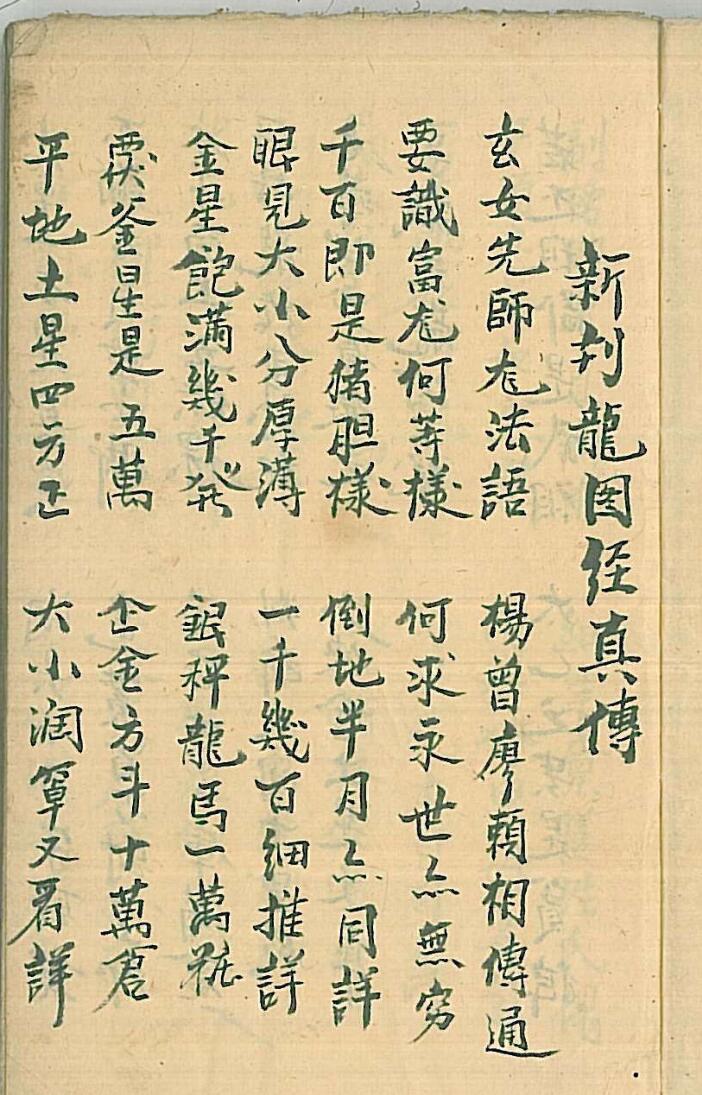 新刋龍图经真傳
玄女先師尨法語 楊曾廖賴相傳通
要識富尨何等様 何求永世亦無穷
千百即是猪胆樣 倒地半月亦同詳
眼見大小分厚薄 一千幾百細推詳
金星飽滿幾千 銀秤龍馬一萬粧
覆釜星是五萬 企金方斗十萬倉
平地土星四方正 大小润窄又看詳